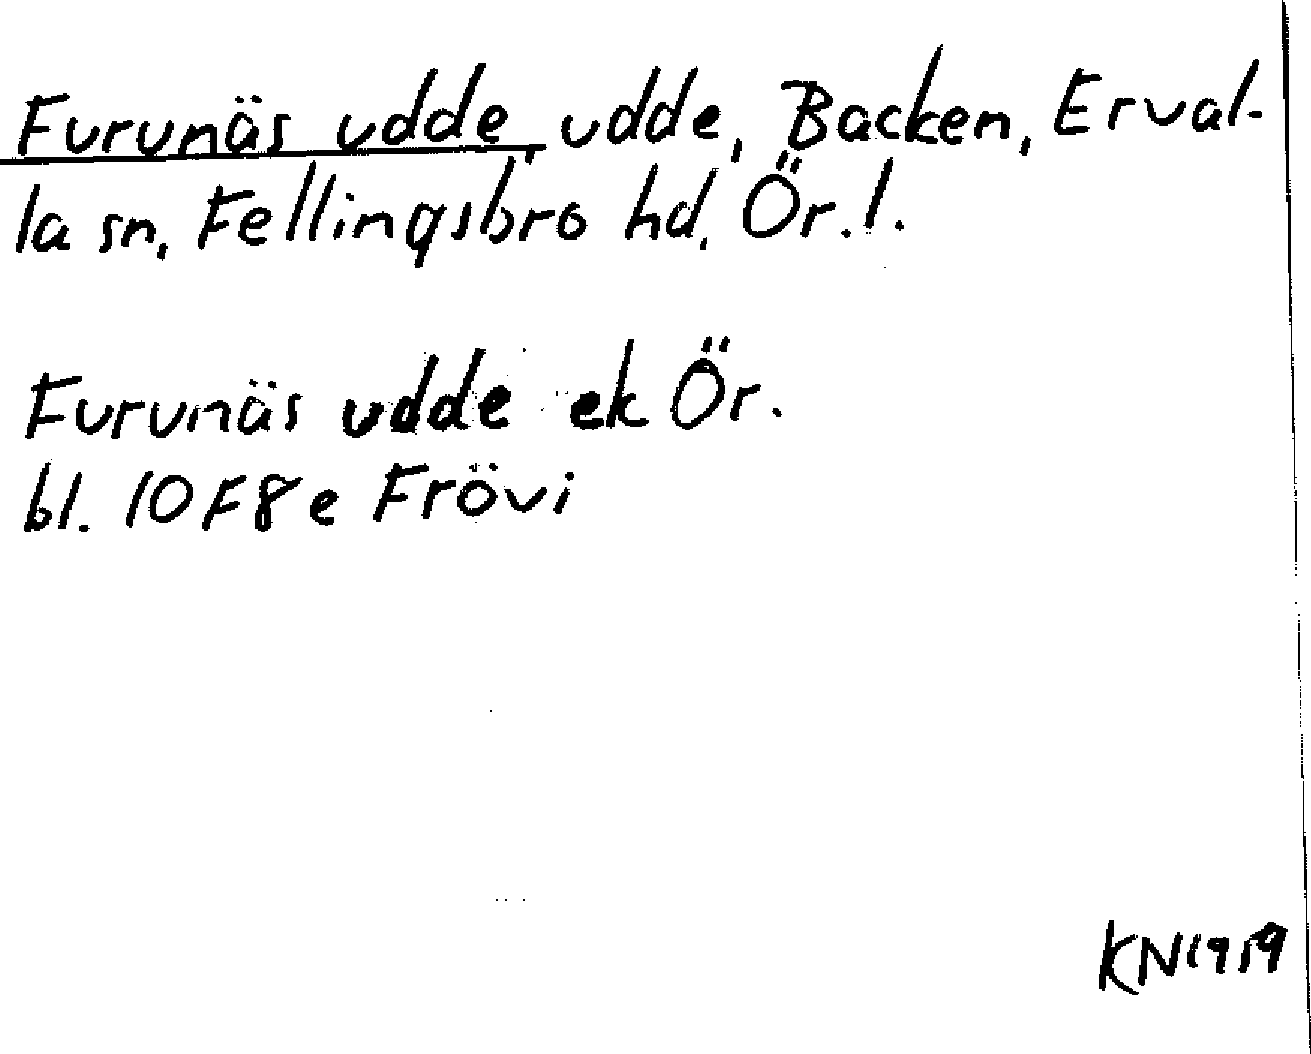 Furunäs udde, udde, Backen, Erval-
la sn, Fellingsbro hd, Ör.l.
Furunäs udde ek Ör.
bl. 10F8e Frövi